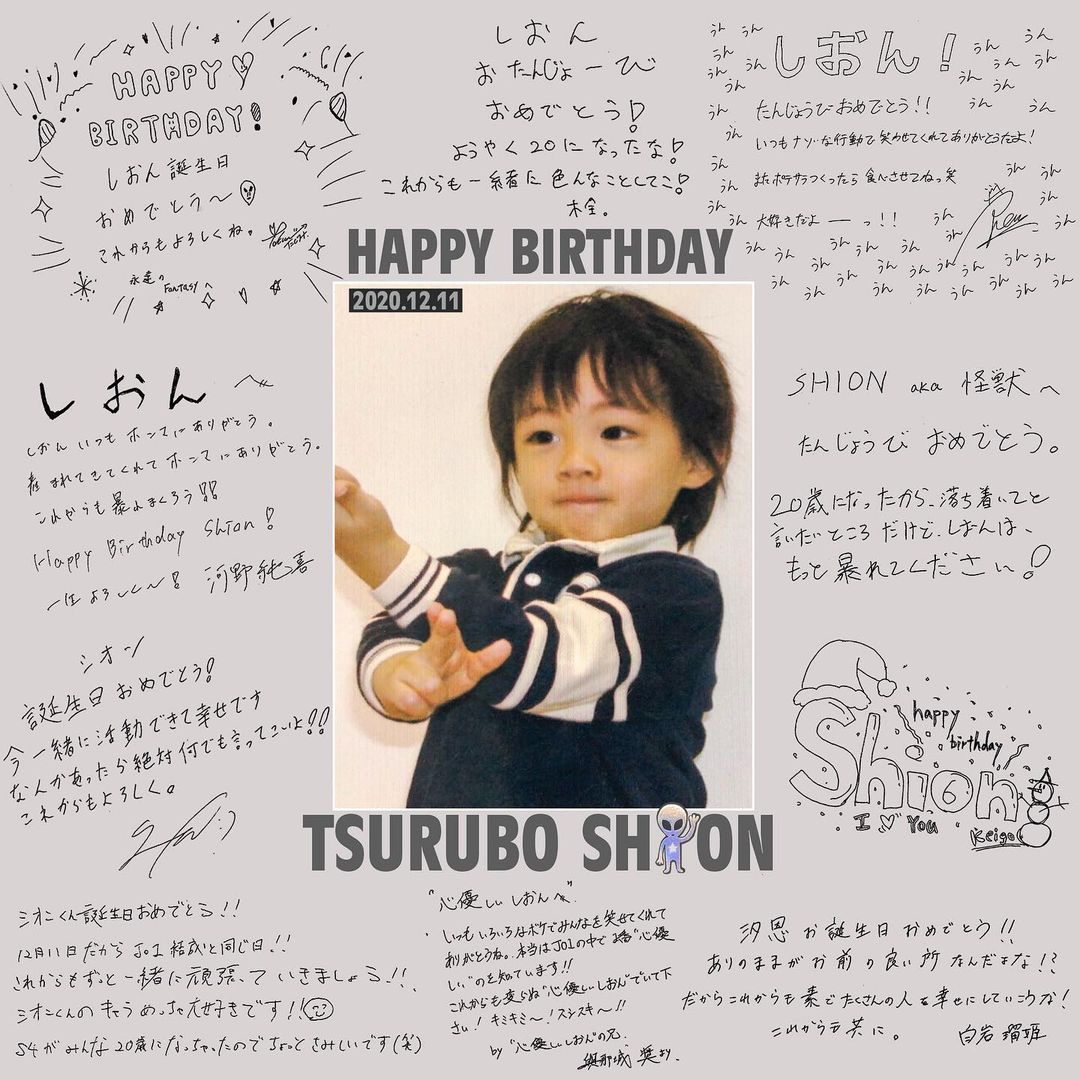 HAPPY
BIRTHDAY!
しおん誕生日
おめでとう〜
これからもよろしくね。
永遠の
Fantasyへ
しおん
おたんじょーび
おめでとう!
ようやく20になったな!
これからも一緒に色んなことしてこ!
木全。
しおん!
たんじょうびおめでとう!!
いつもナゾな行動で笑わせてくれてありがとうだよ!
またポテサラつくったら食べさせてねっ笑
大好きだよーーっ!!
うん うん うん うん うん うん うん うん
HAPPY BIRTHDAY
2020.12.11
しおんへ
しおん いつもホンマにありがとう。
産まれてきてくれてホンマにありがとう。
これからも暴れまくろう!!
Happy Birthday Shion!
一生よろしく〜! 河野純喜
SHION aka 怪獣へ
たんじょうび おめでとう。
20歳になったから、落ち着いてと
言いたいところだけど、しおんは、
もっと暴れてください!
シオン
誕生日おめでとう!
今一緒に活動できて幸せです
なんかあったら絶対何でも言ってこいよ!!
これからもよろしく。
Shion
happy
birthday
I ♡ You
Keigo
TSURUBO SHION
シオンくん誕生日おめでとう!!
12月11日だからJO1結成と同じ日!!
これからもずっと一緒に頑張っていきましょう!!
シオンくんのキャラめっちゃ大好きです!
S4がみんな20歳になっちゃったのでちょっとさみしいです(笑)
"心優しいしおんへ"
・いつもいろいろなボケでみんなを笑せてくれて
ありがとうね。本当はJO1の中で1番"心優
しい"のを知っています!!
これからも変らぬ"心優しいしおん"でいて下
さい! キミキミ〜! スシスキ〜!!
by "心優しいしおん"の兄.
與那城 奨より.
汐恩 お誕生日おめでとう!!
ありのままがお前の良い所なんだよな!?
だからこれからも素でたくさんの人を幸せにしていこうな!
これからも共に。 白岩瑠姫